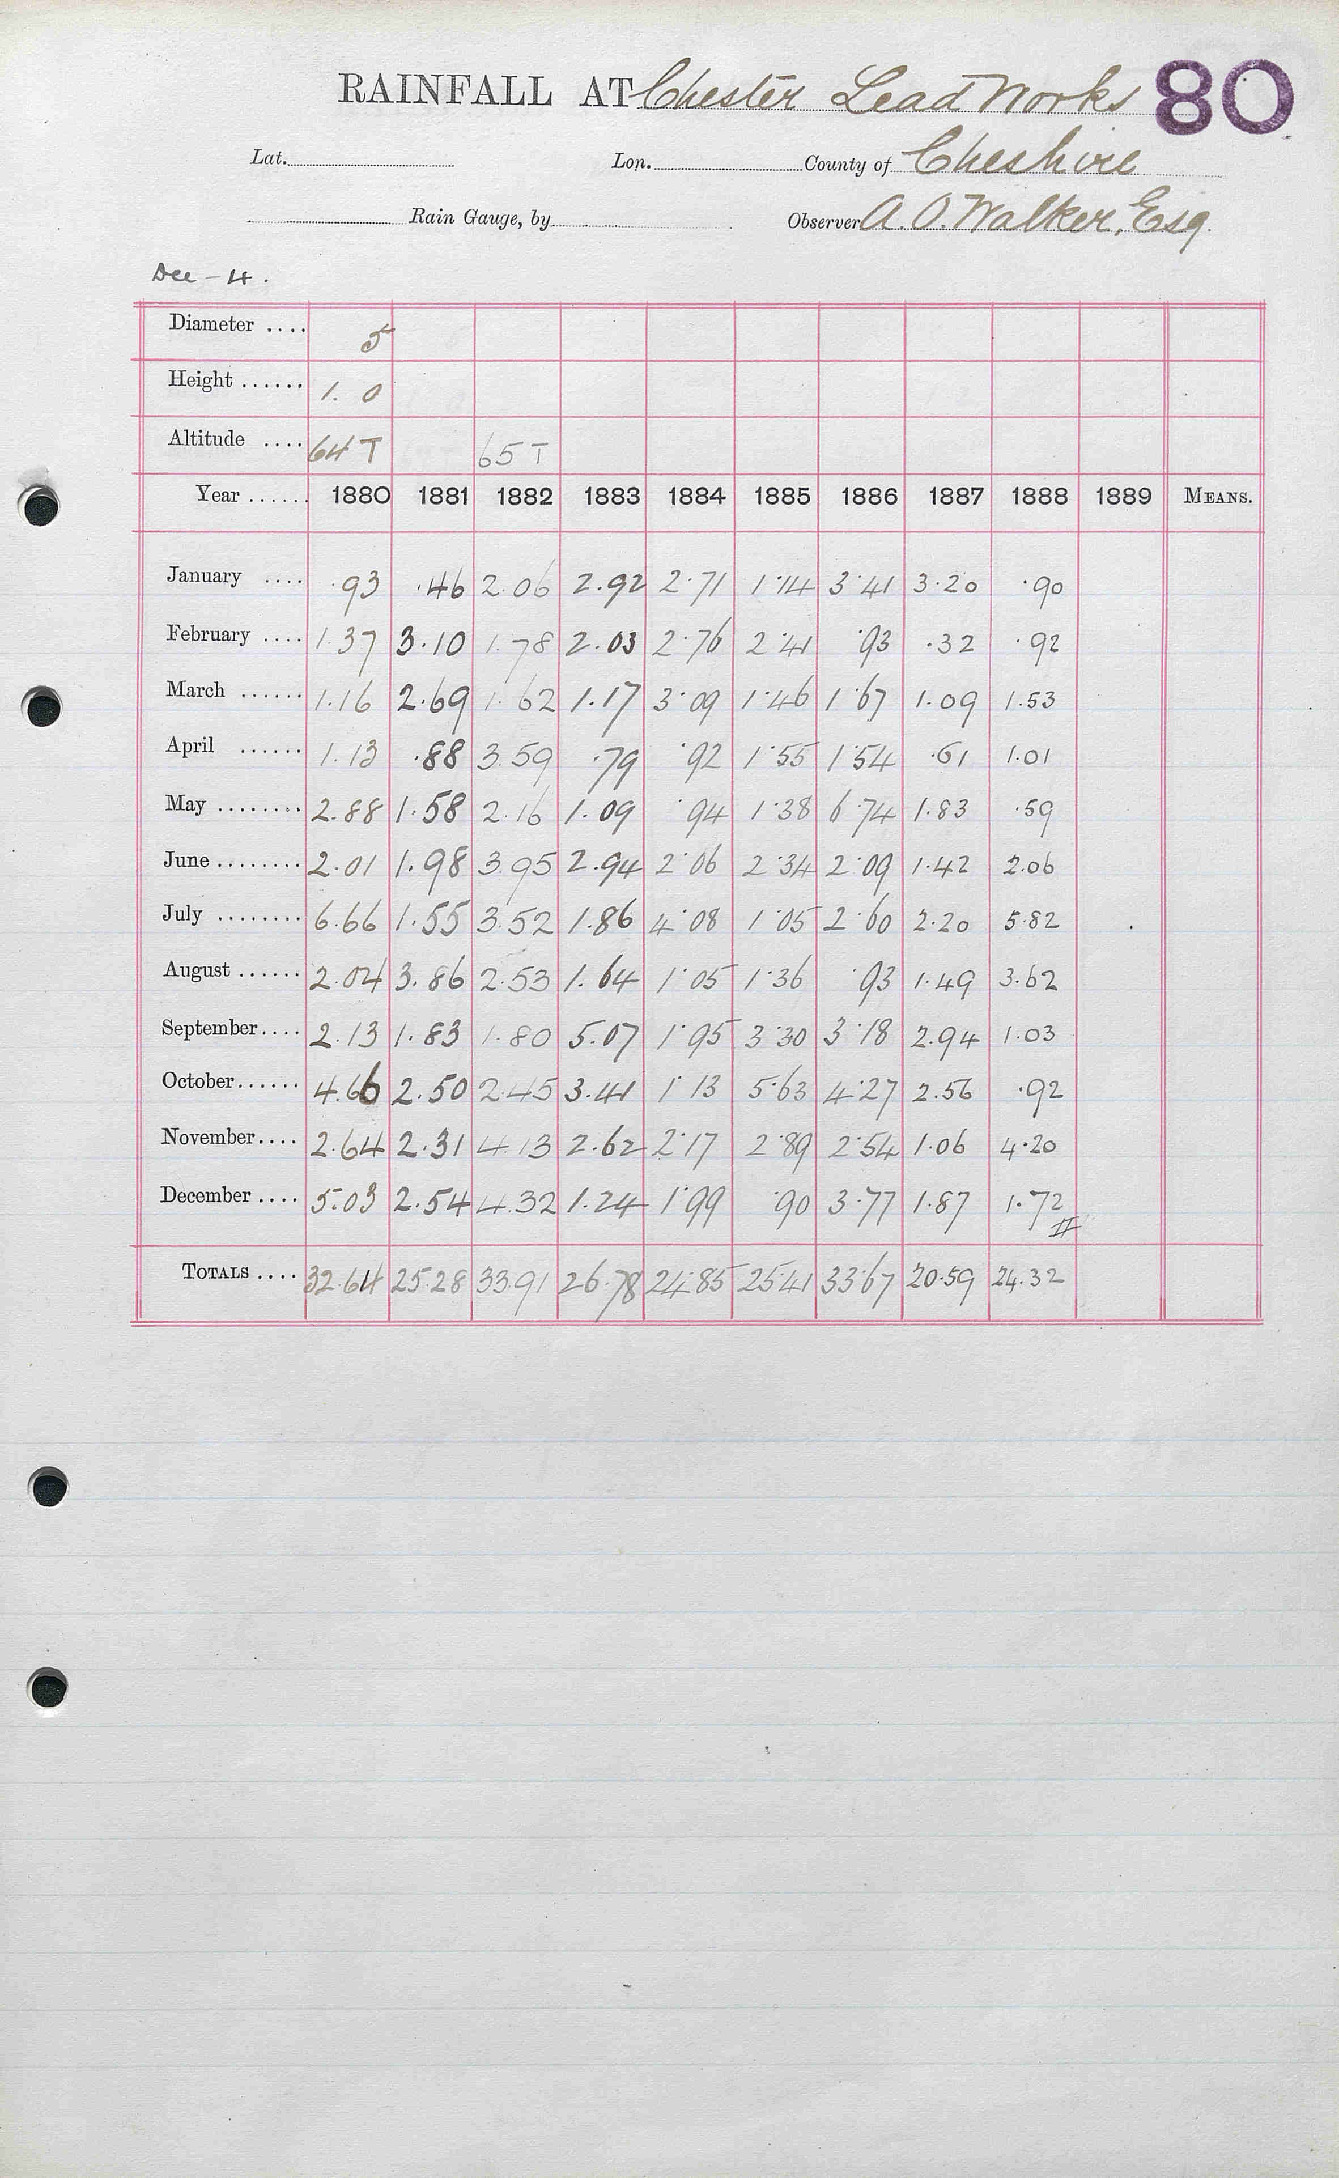 RAINFALL AT Chester Lead Works 80
Lat. Lon. County of Cheshire
Rain Gauge, by Observer A. O. Walker, Esq
Dec - 4.
Diameter .... 5
Height ...... 1. 0
Altitude .... 64 T 65 T
Year ...... 1880 1881 1882 1883 1884 1885 1886 1887 1888 1889 MEANS.
January .... .93 .46 2.06 2.92 2.71 1.14 3.41 3.20 .90
February .... 1.37 3.10 1.78 2.03 2.76 2.41 .93 .32 .92
March ...... 1.16 2.69 1.62 1.17 3.09 1.46 1.67 1.09 1.53
April ...... 1.13 .88 3.59 .79 .92 1.55 1.54 .61 1.01
May ........ 2.88 1.58 2.16 1.09 .94 1.38 6.74 1.83 .59
June ........ 2.01 1.98 3.95 2.94 2.06 2.34 2.09 1.42 2.06
July ........ 6.66 1.55 3.52 1.86 4.08 1.05 2.60 2.20 5.82
August ...... 2.04 3.86 2.53 1.64 1.05 1.36 .93 1.49 3.62
September .... 2.13 1.83 1.80 5.07 1.95 3.30 3.18 2.94 1.03
October ...... 4.66 2.50 2.45 3.41 1.13 5.63 4.27 2.56 .92
November .... 2.64 2.31 4.13 2.62 2.17 2.89 2.54 1.06 4.20
December .... 5.03 2.54 4.32 1.24 1.99 .90 3.77 1.87 1.72
II
TOTALS .... 32.64 25.28 33.91 26.78 24.85 25.41 33.67 20.59 24.32